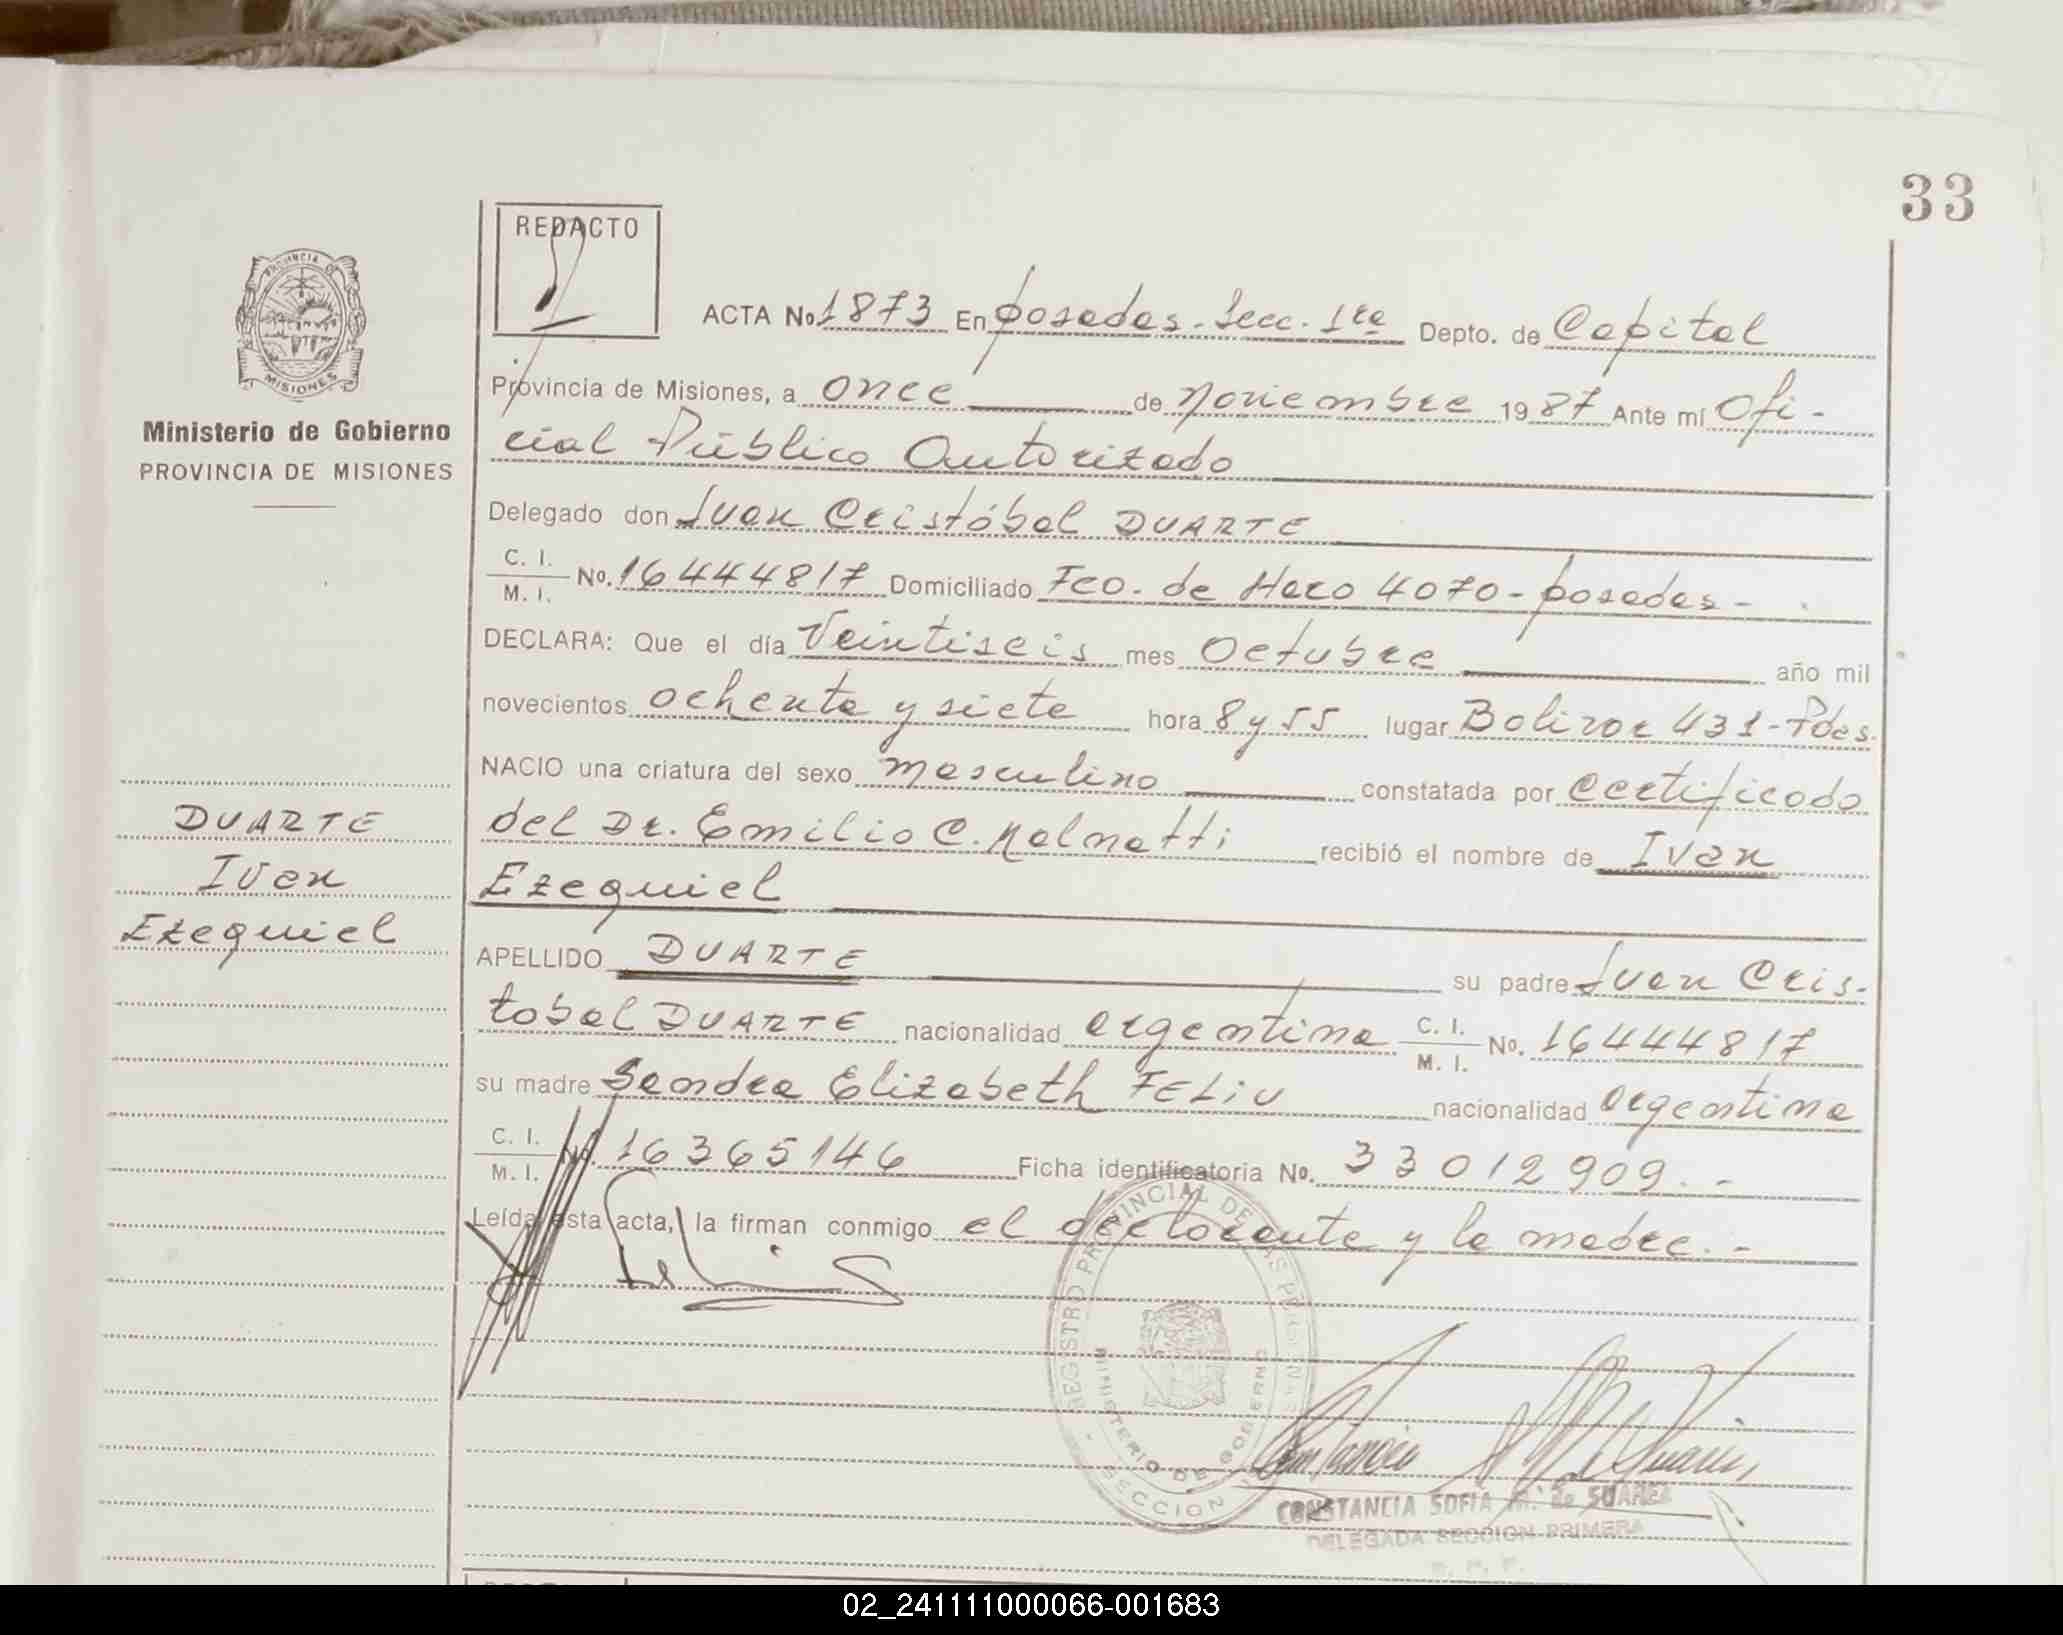 33
REDACTO
PROVINCIA DE
MISIONES
Ministerio de Gobierno
PROVINCIA DE MISIONES
ACTA No. 1873 En Posadas - Secc. 1ra Depto. de Capital
Provincia de Misiones, a once de Noviembre 1987 Ante mí Ofi-
cial Público Autorizado
Delegado don Juan Cristóbal DUARTE
C. I.
M. I. No. 16444817 Domiciliado Fco. de Haro 4070 - Posadas -
DECLARA: Que el día Veintiseis mes Octubre año mil
novecientos ochenta y siete hora 8 y 55 lugar Bolivar 431 - Pdas.
NACIO una criatura del sexo masculino constatada por Certificado
del Dr. Emilio C. Malmatti recibió el nombre de Ivan
Ezequiel
DUARTE
Ivan
Ezequiel
APELLIDO DUARTE su padre Juan Cris-
tobal DUARTE nacionalidad argentina C. I. M. I. No. 16444817
su madre Sandra Elizabeth FELIU nacionalidad argentina
C. I.
M. I. No. 16365146 Ficha identificatoria No. 33012909. -
Leída esta acta, la firman conmigo el declarante y la madre. -
REGISTRO PROVINCIAL DE LAS PERSONAS
MINISTERIO DE GOBIERNO
SECCION
CONSTANCIA SOFIA M. de SUAREZ
DELEGADA SECCION PRIMERA
02_241111000066-001683